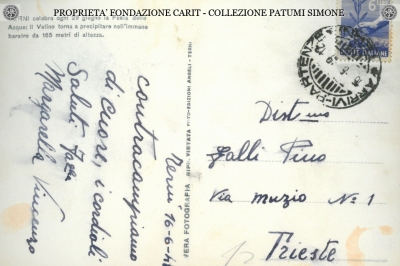 PROPRIETA' FONDAZIONE CARIT - COLLEZIONE PATUMI SIMONE
TERNI celebra ogni 29 giugno la Festa delle
Acque: il Velino torna a precipitare nell'immane
baratro da 165 metri di altezza.
ARRIVI-PARTENZE
Terni 16-6-48
contraccambiamo
di cuore, i cordiali
Saluti
Margarella Vincenzo
VERA FOTOGRAFIA RIPR. VIETATA FOTO-EDIZIONI ANGELI - TERNI
Distmo
Galli Pino
Via Muzio N° 1
Trieste